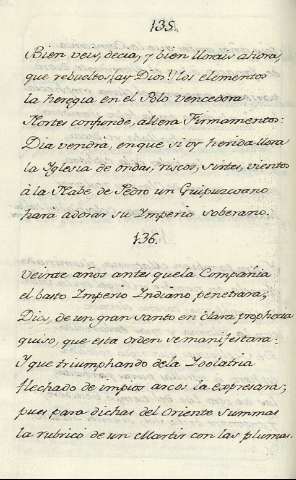 135.
Bien veis, decia, y bien llorais ahora,
que rebueltos (ay Dios!) los elementos
la heregia en el Polo vencedora
Nortes confunde, altera Firmamentos:
Dia vendrà, en que si oy herida llora
la Iglesia de ondas, riscos, sirtes, vientos
à la Nabe de Pedro un Guipuzcoano
harà adorar su Imperio soberano.
136.
Veinte años antes que la Compañia
el basto Imperio Indiano, penetrara;
Dios, de un gran Santo en clara prophecia
quiso, que esta orden se manifestara:
Y que triumphando de la Ydolatria
flechado de impios arcos la expresara;
pues para dichas del Oriente summas
la rubricó de un Martir con las plumas.